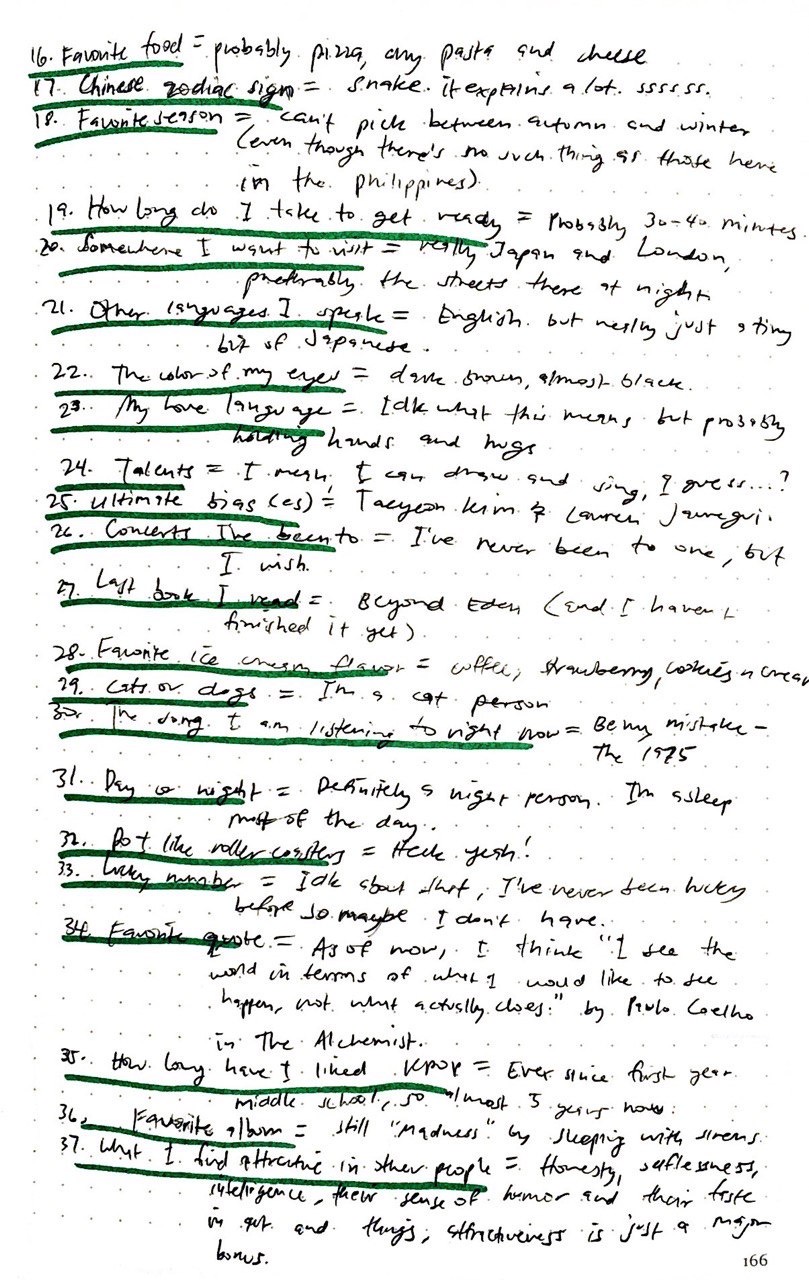 16. Favorite food = probably pizza, any pasta and cheese
17. Chinese zodiac sign = snake. it explains a lot. ssssss.
18. Favorite season = can't pick between autumn and winter
(even though there's no such thing as those here
in the philippines).
19. How long do I take to get ready = Probably 30-40 minutes.
20. Somewhere I want to visit = really Japan and London,
preferably the streets there at night
21. Other languages I speak = English. but really just a tiny
bit of Japanese.
22. The color of my eyes = dark brown, almost black.
23. My love language = Idk what this means but probably
holding hands and hugs
24. Talents = I mean, I can draw and sing, I guess...?
25. Ultimate bias (es) = Taeyeon Kim & Lauren Jauregui.
26. Concerts I've been to = I've never been to one, but
I wish.
27. Last book I read = Beyond Eden (and I haven't
finished it yet)
28. Favorite ice cream flavor = coffee, strawberry, cookies n cream
29. Cats or dogs = I'm a cat person
30. The song I am listening to right now = Be my mistake -
The 1975
31. Day or night = Definitely a night person. I'm asleep
most of the day.
32. Do I like roller coasters = Heck yeah!
33. Lucky number = Idk about that, I've never been lucky
before so maybe I don't have.
34. Favorite quote = As of now, I think "I see the
world in terms of what I would like to see
happen, not what actually does." by Paulo Coelho
in The Alchemist.
35. How long have I liked Kpop = Ever since first year
middle school, so almost 5 years now.
36. Favorite album = still "Madness" by sleeping with sirens
37. What I find attractive in other people = Honesty, selflessness,
intelligence, their sense of humor and their taste
in art and things, attractiveness is just a major
bonus.
166